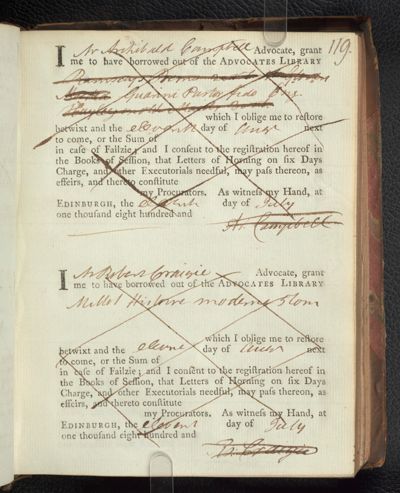 119.
I Mr Archibald Campbell Advocate, grant
me to have borrowed out of the ADVOCATES LIBRARY
Guarini Pastor fido
which I oblige me to reſtore
betwixt and the eleventh day of next
to come, or the Sum of
in caſe of Failzie; and I conſent to the regiſtration hereof in
the Books of Seſſion, that Letters of Horning on ſix Days
Charge, and other Executorials needful, may paſs thereon, as
effeirs, and thereto conſtitute
my Procurators. As witneſs my Hand, at
EDINBURGH, the eleventh day of July
one thouſand eight hundred and
Ar. Campbell
I Mr Robert Craigie Advocate, grant
me to have borrowed out of the ADVOCATES LIBRARY
Millot Histoire moderne 5 tom
which I oblige me to reſtore
betwixt and the day of next
to come, or the Sum of
in caſe of Failzie; and I conſent to the regiſtration hereof in
the Books of Seſſion, that Letters of Horning on ſix Days
Charge, and other Executorials needful, may paſs thereon, as
effeirs, and thereto conſtitute
my Procurators. As witneſs my Hand, at
EDINBURGH, the day of July
one thouſand eight hundred and
R. Craigie